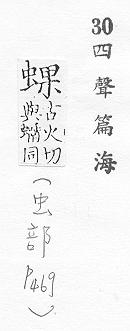 30 四聲篇海
蜾
古火切
與 同
(虫部 P469)